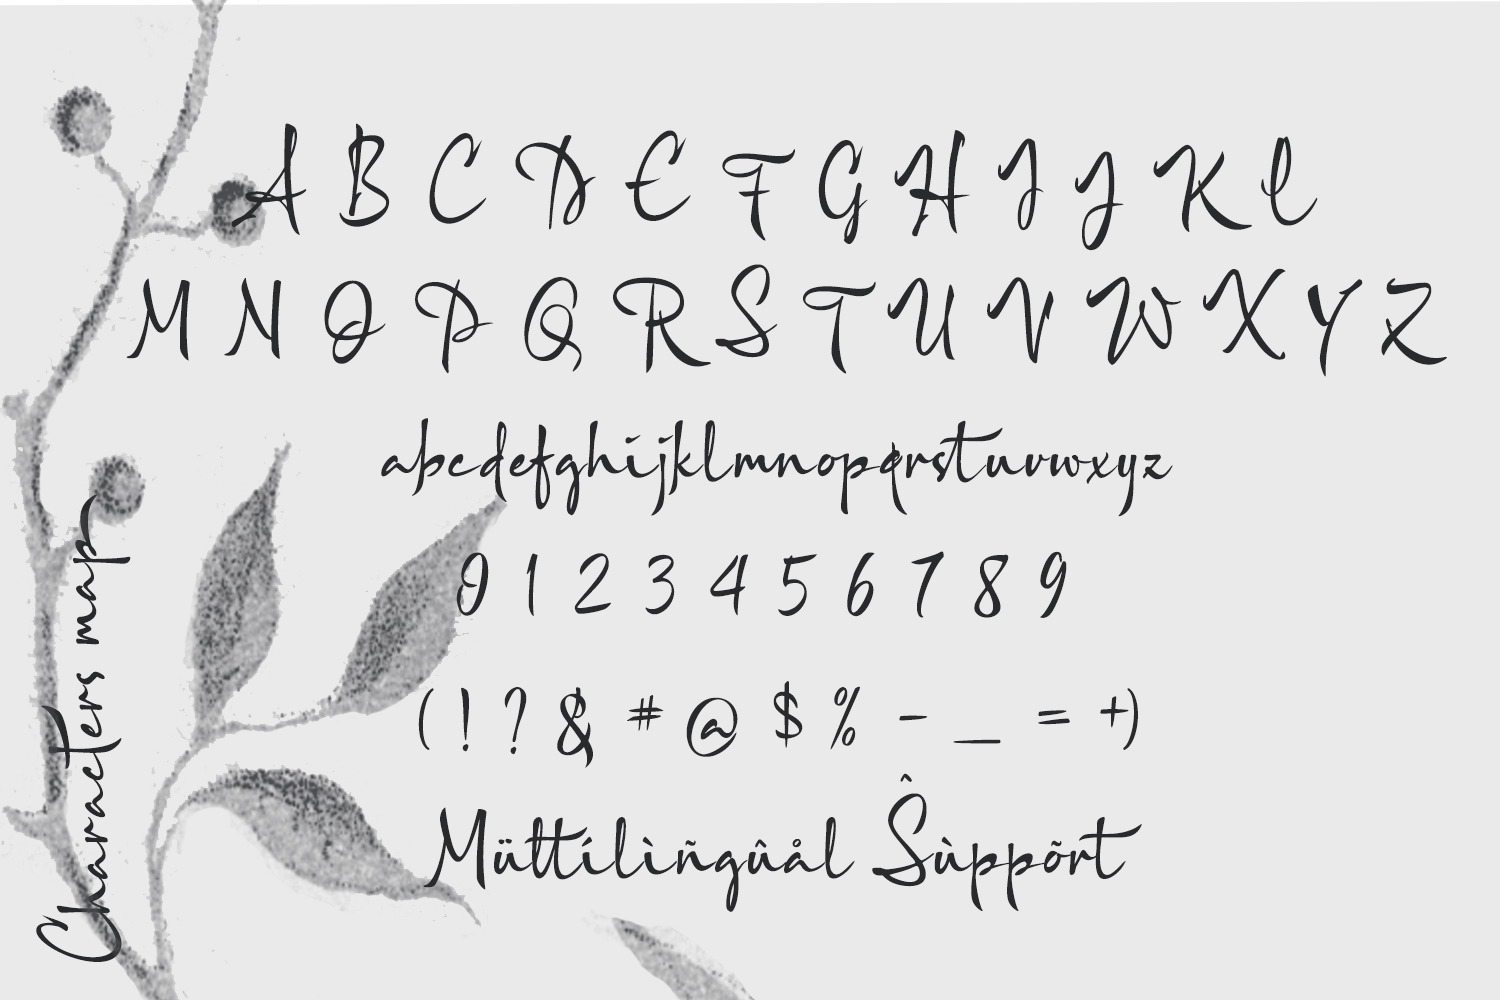 A B C D E F G H I J K L
M N O P Q R S T U V W X Y Z
abcdefghijklmnopqrstuvwxyz
0 1 2 3 4 5 6 7 8 9
( ! ? & # @ $ % - _ = +)
Müttílìñgûål Ŝùppõrt
Characters map